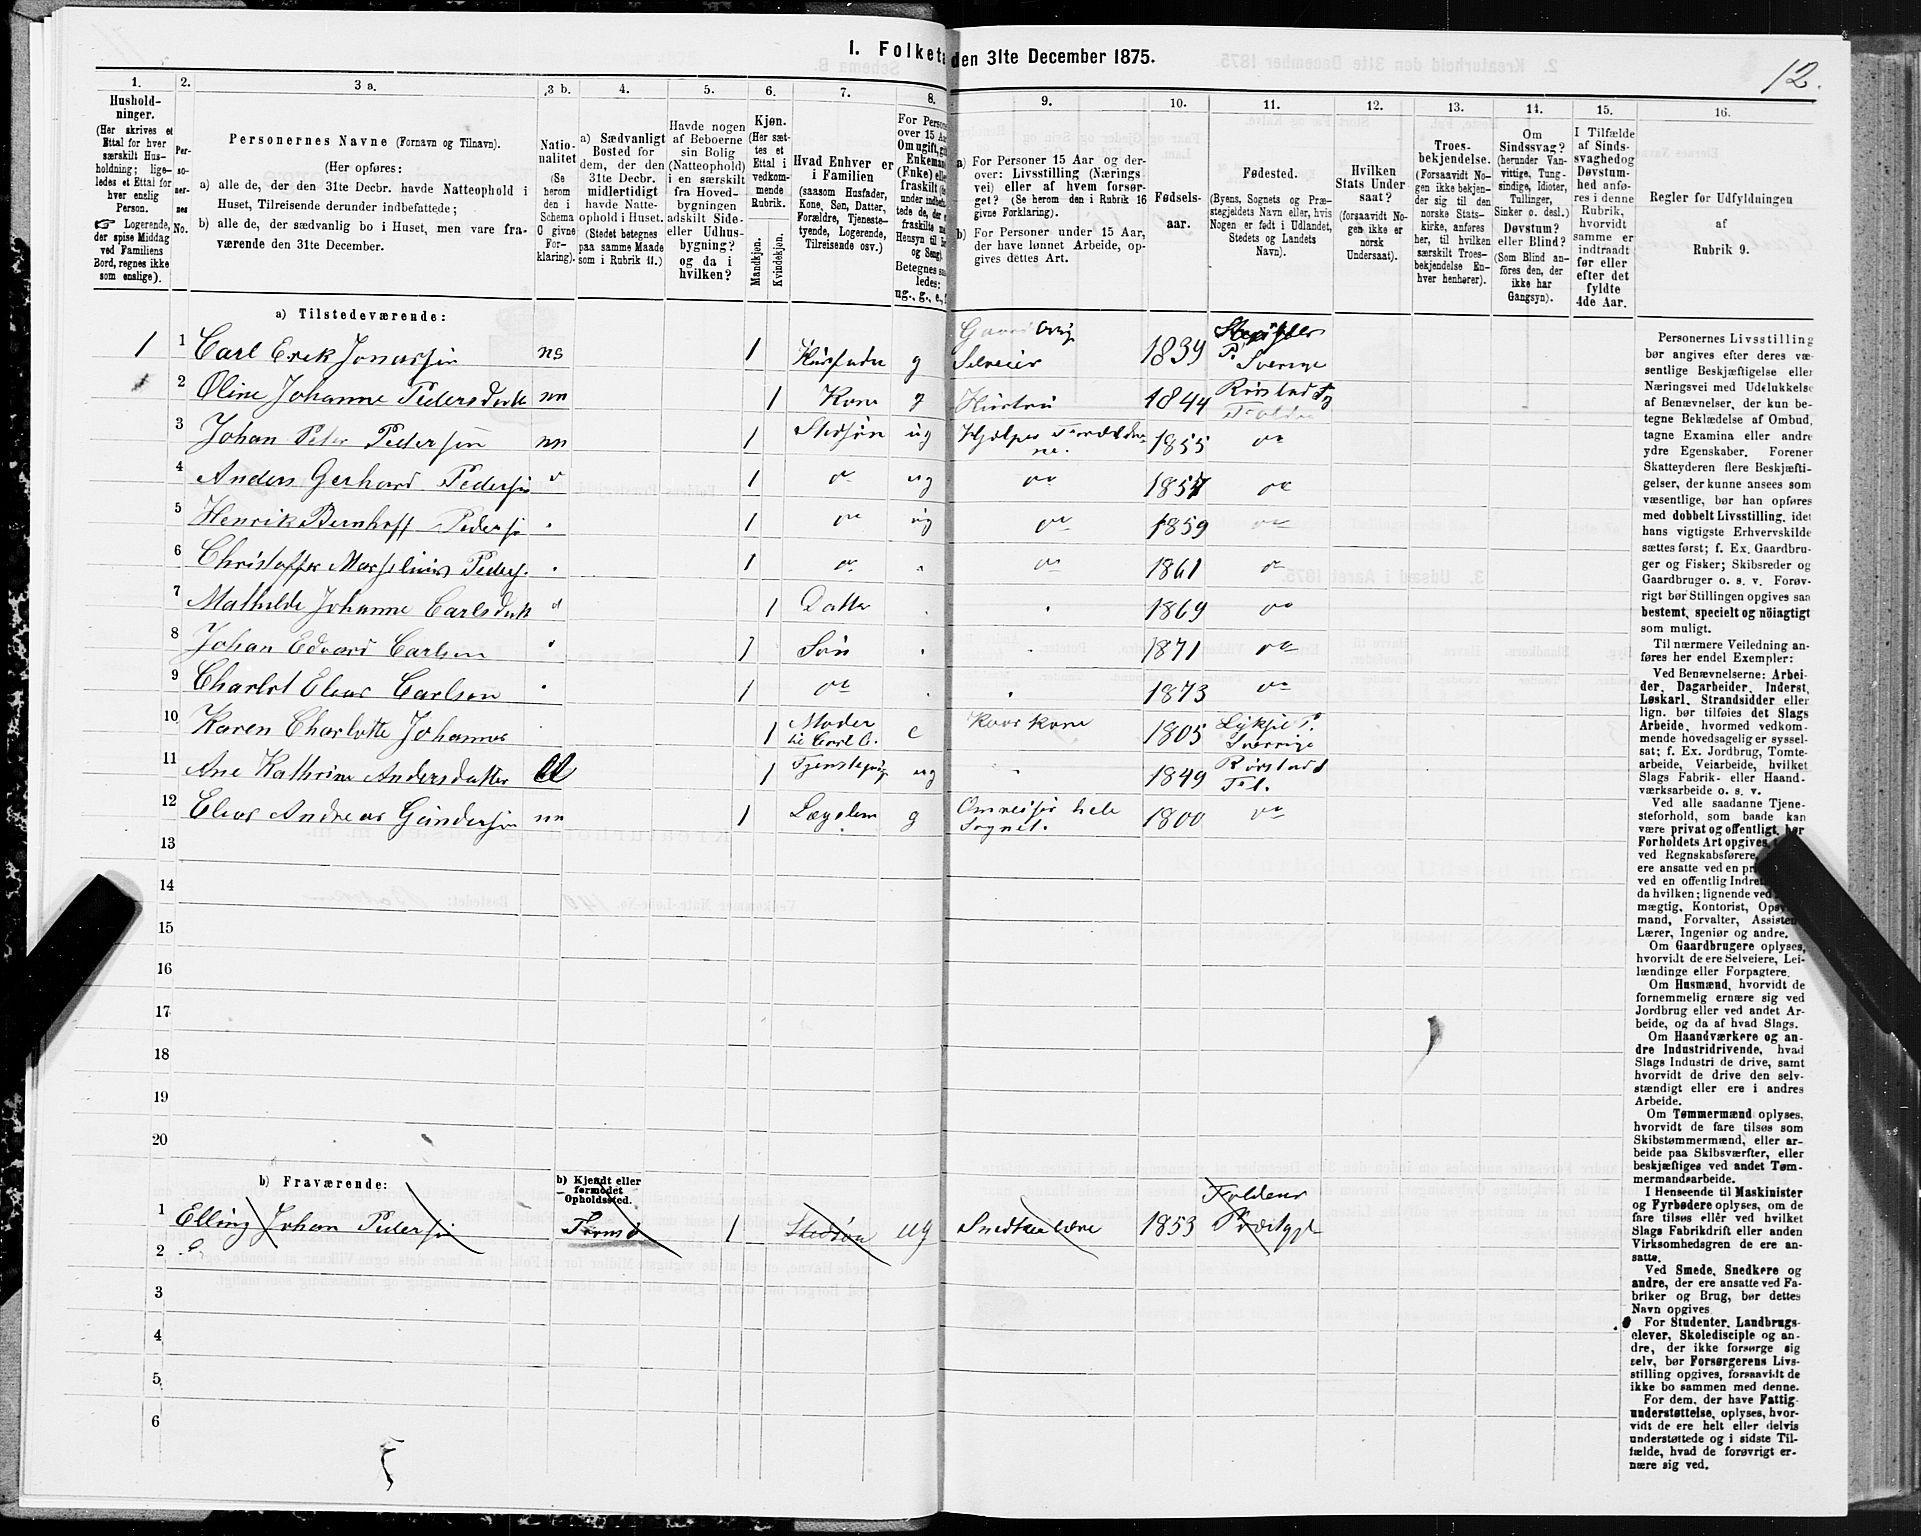 I. Folketæ den 31te December 1875.
12.
1.
Hushold-
ninger.
(Her skrives et
Ettal for hver
særskilt Hus-
holdning; lige-
ledes et Ettal for
hver enslig
Person.
☞ Logerende,
der spise Middag
ved Familiens
Bord, regnes ikke
som enslige).
2.
Per-
so-
ner-
nes
No.
3 a.
Personernes Navne (Fornavn og Tilnavn).
(Her opføres:
a) alle de, der den 31te Decbr. havde Natteophold i
Huset, Tilreisende derunder indbefattede;
b) alle de, der sædvanlig bo i Huset, men vare fra-
værende den 31te December.
3 b.
Natio-
nalitet
(Se
herom
den i
Schema
C givne
For-
klaring).
4.
a) Sædvanligt
Bosted for
dem, der den
31te Decbr.
midlertidigt
havde Natte-
ophold i Huset.
(Stedet betegnes
paa samme Maade
som i Rubrik 11.)
5.
Havde nogen
af Beboerne
sin Bolig
(Natteophold)
i en særskilt
fra Hoved-
bygningen
adskilt Side-
eller Udhus-
bygning?
og da i
hvilken?
6.
Kjøn.
(Her sæt-
tes et
Ettal i
vedkom-
mende
Rubrik.
Mandkjøn.
Kvindekjøn.
7.
Hvad Enhver er
i Familien
(saasom Husfader,
Kone, Søn, Datter,
Forældre, Tjeneste-
tyende, Logerende,
Tilreisende osv.)
8.
For Persone
over 15 Aar
Om ugift, gift
Enkemand
(Enke) eller
fraskilt
Betegnes saa-
ledes:
ug., g., e.,
9.
a) For Personer 15 Aar og der-
over: Livsstilling (Nærings-
vei) eller af hvem forsør-
get? (Se herom den i Rubrik 16
givne Forklaring).
b) For Personer under 15 Aar,
der have lønnet Arbeide, op-
gives dettes Art.
10.
Fødsels-
aar.
11.
Fødested.
(Byens, Sognets og Præ-
stegjeldets Navn eller, hvis
Nogen er født i Udlandet,
Stedets og Landets
Navn).
12.
Hvilken
Stats Under-
saat?
(forsaavidt No-
gen ikke er
norsk
Undersaat).
13.
Troes-
bekjendelse.
(Forsaavidt No-
gen ikke bekjen-
der sig til den
norske Stats-
kirke, anføres
her, til hvilken
særskilt Troes-
bekjendelse En-
hver henhører).
14.
Om
Sindssvag?
(herunder Van-
vittige, Tung-
sindige, Idioter,
Tullinger,
Sinker o. desl.)
Døvstum?
eller Blind?
(Som Blind an-
føres den, der
ikke har
Gangsyn).
15.
I Tilfælde
af Sinds-
svaghed og
Døvstum-
hed anfø-
res i denne
Rubrik,
hvorvidt
samme er
indtraadt
før eller
efter det
fyldte
4de Aar.
16.
Regler for Udfyldningen
af
Rubrik 9.
a) Tilstedeværende:
1 1 Carl Erik Jonassen ns 1 Husfader g Selveier 1839 P. Sverige
2 Oline Johanne Pedersdatt nn 1 Kone g Hustru 1844 Rørstad
3 Johan Peter Pedersen nn 1 Stedsøn ug Hjælper Forældre
ne. 1855 do
4 Anders Gerhard Pedersen d 1 do ug do 1857 do
5 Henrik Bernhoff Peders 1 do ug do 1859 do
6 Christoffer Peders. 1 do do 1861 do
7 Mathilde Johanne Carlsdatt d 1 Datter 1869 do
8 Johan Edvard Carlsen 1 Søn 1871 do
9 Charlot Elias Carlsen 1 do 1873 do
10 Karen Charlotte Johannes 1 Moder
til Carl E. e Kaarkone 1805 P.
Sverrige
11 Ane Kathrine Andersdatter 1 Tjenestepig ug 1849 Rørstad
12 Elias Andreas Gundersen nn 1 Lægslem g Omreiser hele
Sognet. 1800 do
13
14
15
16
17
18
19
20
b) Fraværende:
b) Kjendt eller
formodet
Opholdssted.
1 Elling Johan Pedersen Tromsø 1 Stedsøn ug Snedkerlære 1853 Foldens
2
3
4
5
6
Personernes Livsstilling
bør angives efter deres væ-
sentlige Beskjæftigelse eller
Næringsvei med Udelukkelse
af Benævnelser, der kun be-
tegne Beklædelse af Ombud,
tagne Examina eller andre
ydre Egenskaber. Forener
Skatteyderen flere Beskjæfti-
gelser, der kunne ansees som
væsentlige, bør han opføres
med dobbelt Livsstilling, idet
hans vigtigste Erhvervskilde
sættes først; f. Ex. Gaardbru-
ger og Fisker; Skibsreder og
Gaardbruger o. s. v. Forøv-
rigt bør Stillingen opgives saa
bestemt, specielt og nöiagtigt
som muligt.
Til nærmere Veiledning an-
føres her endel Exempler:
Ved Benævnelserne: Arbei-
der, Dagarbeider, Inderst,
Løskarl, Strandsidder eller
lign. bør tilføies det Slags
Arbeide, hvormed vedkom-
mende hovedsagelig er syssel-
sat; f. Ex. Jordbrug, Tomte-
arbeide, Veiarbeide, hvilket
Slags Fabrik- eller Haand-
værksarbeide o. s. v.
Ved alle saadanne Tjene-
steforhold, som baade kan
være privat og offentligt, bør
Forholdets Art opgives,
ved Regnskabsførere,
ere ansatte ved en pr
ved en offentlig Indret
da hvilken; lignende ved
mægtig, Kontorist, Opsy
mand, Forvalter, Assisten
Lærer, Ingeniør og andre.
Om Gaardbrugere oplyses,
hvorvidt de ere Selveiere, Lei-
lændinge eller Forpagtere.
Om Husmænd, hvorvidt de
fornemmelig ernære sig ved
Jordbrug eller ved andet Ar-
beide, og da af hvad Slags.
Om Haandværkere og an-
dre Industridrivende, hvad
Slags Industri de drive, samt
hvorvidt de drive den selv-
stændigt eller ere i andres
Arbeide.
Om Tømmermænd oplyses,
hvorvidt de fare tilsøs som
Skibstømmermænd, eller ar-
beide paa Skibsværfter, eller
beskjæftiges ved andet Tøm-
mermandsarbeide.
I Henseende til Maskinister
og Fyrbødere oplyses, om de
fare tilsøs eller ved hvilket
Slags Fabrikdrift eller anden
Virksomhedsgren de ere an-
satte.
Ved Smede, Snedkere og
andre, der ere ansatte ved Fa-
briker og Brug, bør dettes
Navn opgives.
For Studenter, Landbrugs-
elever, Skoledisciple og an-
dre, der ikke forsørge sig
selv, bør Forsørgerens Livs-
stilling opgives, forsaavidt de
ikke bo sammen med denne.
For dem, der have Fattig-
understøttelse, oplyses, hvor-
vidt de ere helt eller delvis
understøttede og i sidste Til-
fælde, hvad de forøvrigt er-
nære sig ved.